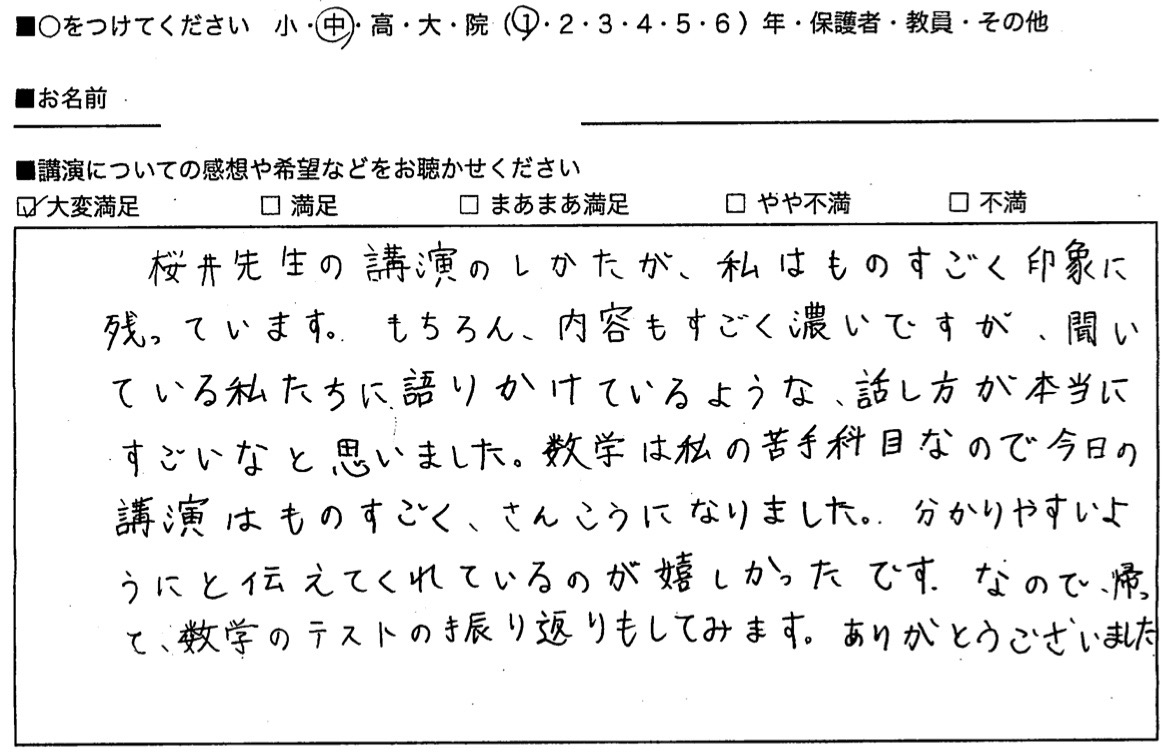 ■○をつけてください 小・中・高・大・院（1・2・3・4・5・6）年・保護者・教員・その他
■お名前
■講演についての感想や希望などをお聴かせください
☑大変満足 □ 満足 □ まあまあ満足 □ やや不満 □ 不満
桜井先生の講演のしかたが、私はものすごく印象に
残っています。もちろん、内容もすごく濃いですが、聞い
ている私たちに語りかけているような、話し方が本当に
すごいなと思いました。数学は私の苦手科目なので今日の
講演はものすごく、さんこうになりました。分かりやすいよ
うにと伝えてくれているのが嬉しかったです。なので、帰っ
て、数学のテストの振り返りもしてみます。ありがとうございました